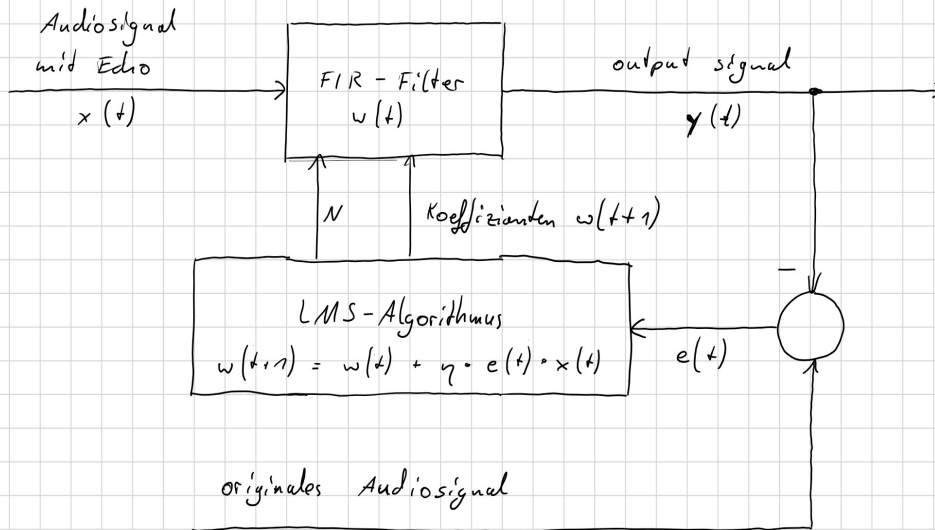 Audiosignal
mit Echo
x(t)
FIR-Filter
w(t)
output signal
y(t)
N
Koeffizianten w(t+1)
-
LMS-Algorithmus
w(t+1) = w(t) + η · e(t) · x(t)
e(t)
originales Audiosignal